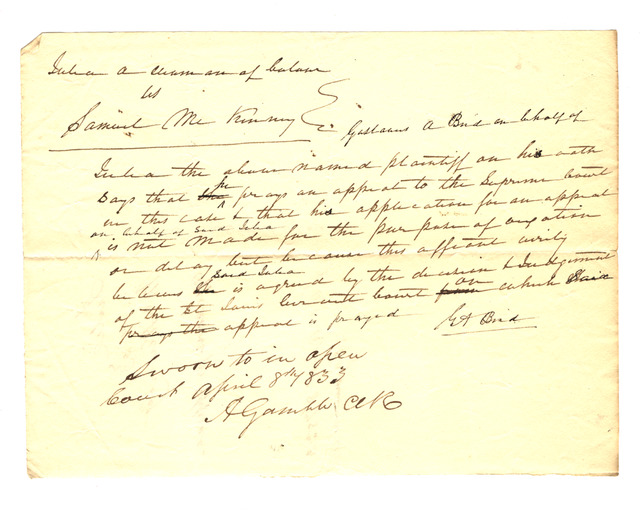 Julia a woman of Colour
vs
Samuel McKinney
Gustavus A Bird on behalf of
Julia the above named plaintiff on his oath
says that he prays an appeal to the Supreme Court
in this case & that his application for an appeal
on behalf of said Julia
is not made for the purpose of vexation
or delay but because this affiant verily
believes said Julia is agreived by the decision & Judgement
of the St Louis Circuit Court on which said
appeal is prayed
G A Bird
Sworn to in open
Court April 8th 1833
A Gamble Clk